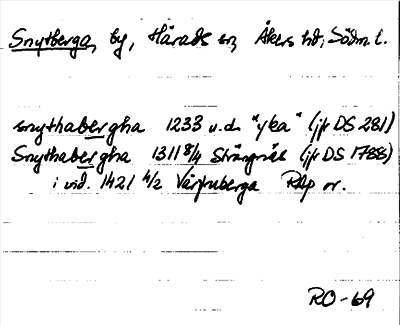 Snytberga, by, Härads sn, Åkers hd, Södm. l.
snythabergha 1233 u.d. "yka" (jfr DS 281)
Snythabergha 1311 8/4 Strängnäs (jfr DS 1788)
i vid. 1421 4/2 Vårfruberga RAp or.
RO-69